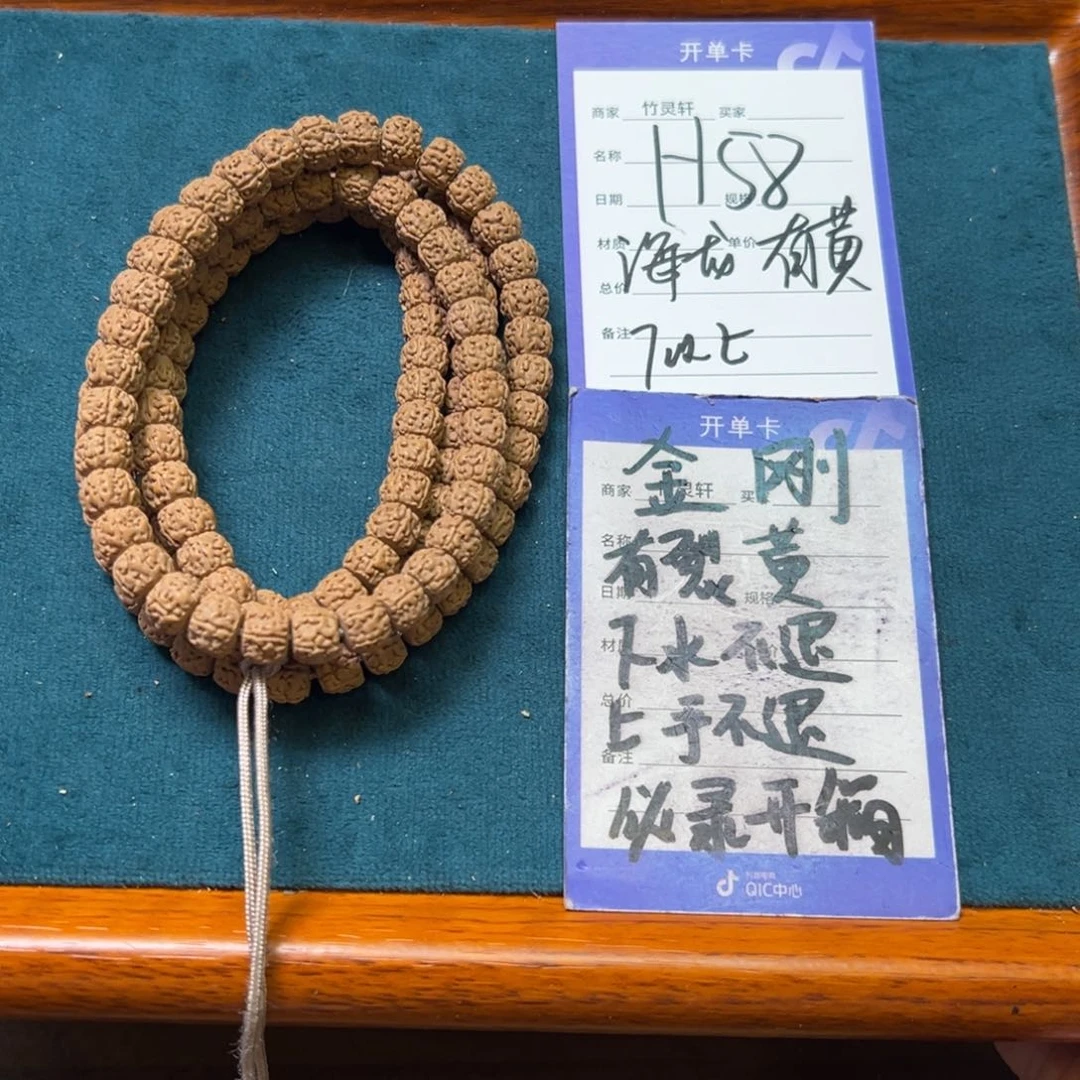 开单卡
商家 竹灵轩 买家
名称 H58
日期 规格
材质 海龙 单价 有黄
总价
备注 7以上
开单卡
金刚
商家 灵轩 买
名称
有裂黄
日期 规格
下水不退
材
总价
上手不退
备注
必录开箱
抖音电商
QIC中心